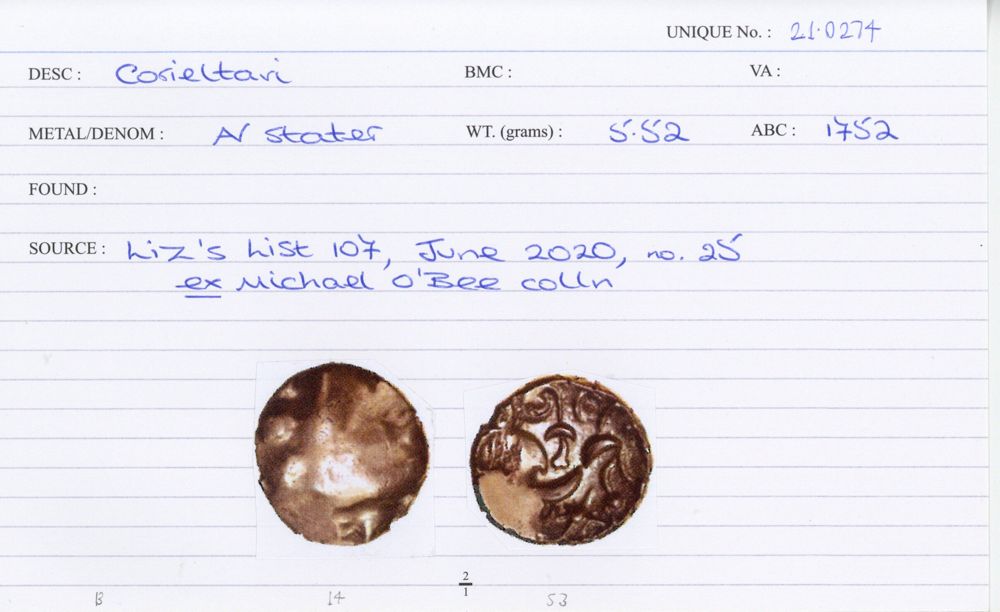 UNIQUE No. : 21.0274
DESC : Corieltavi BMC : VA :
METAL/DENOM : AV stater WT. (grams) : 5.52 ABC : 1752
FOUND :
SOURCE : Liz's List 107, June 2020, no. 25
ex Michael O'Bee colln
2
1
B 14 53